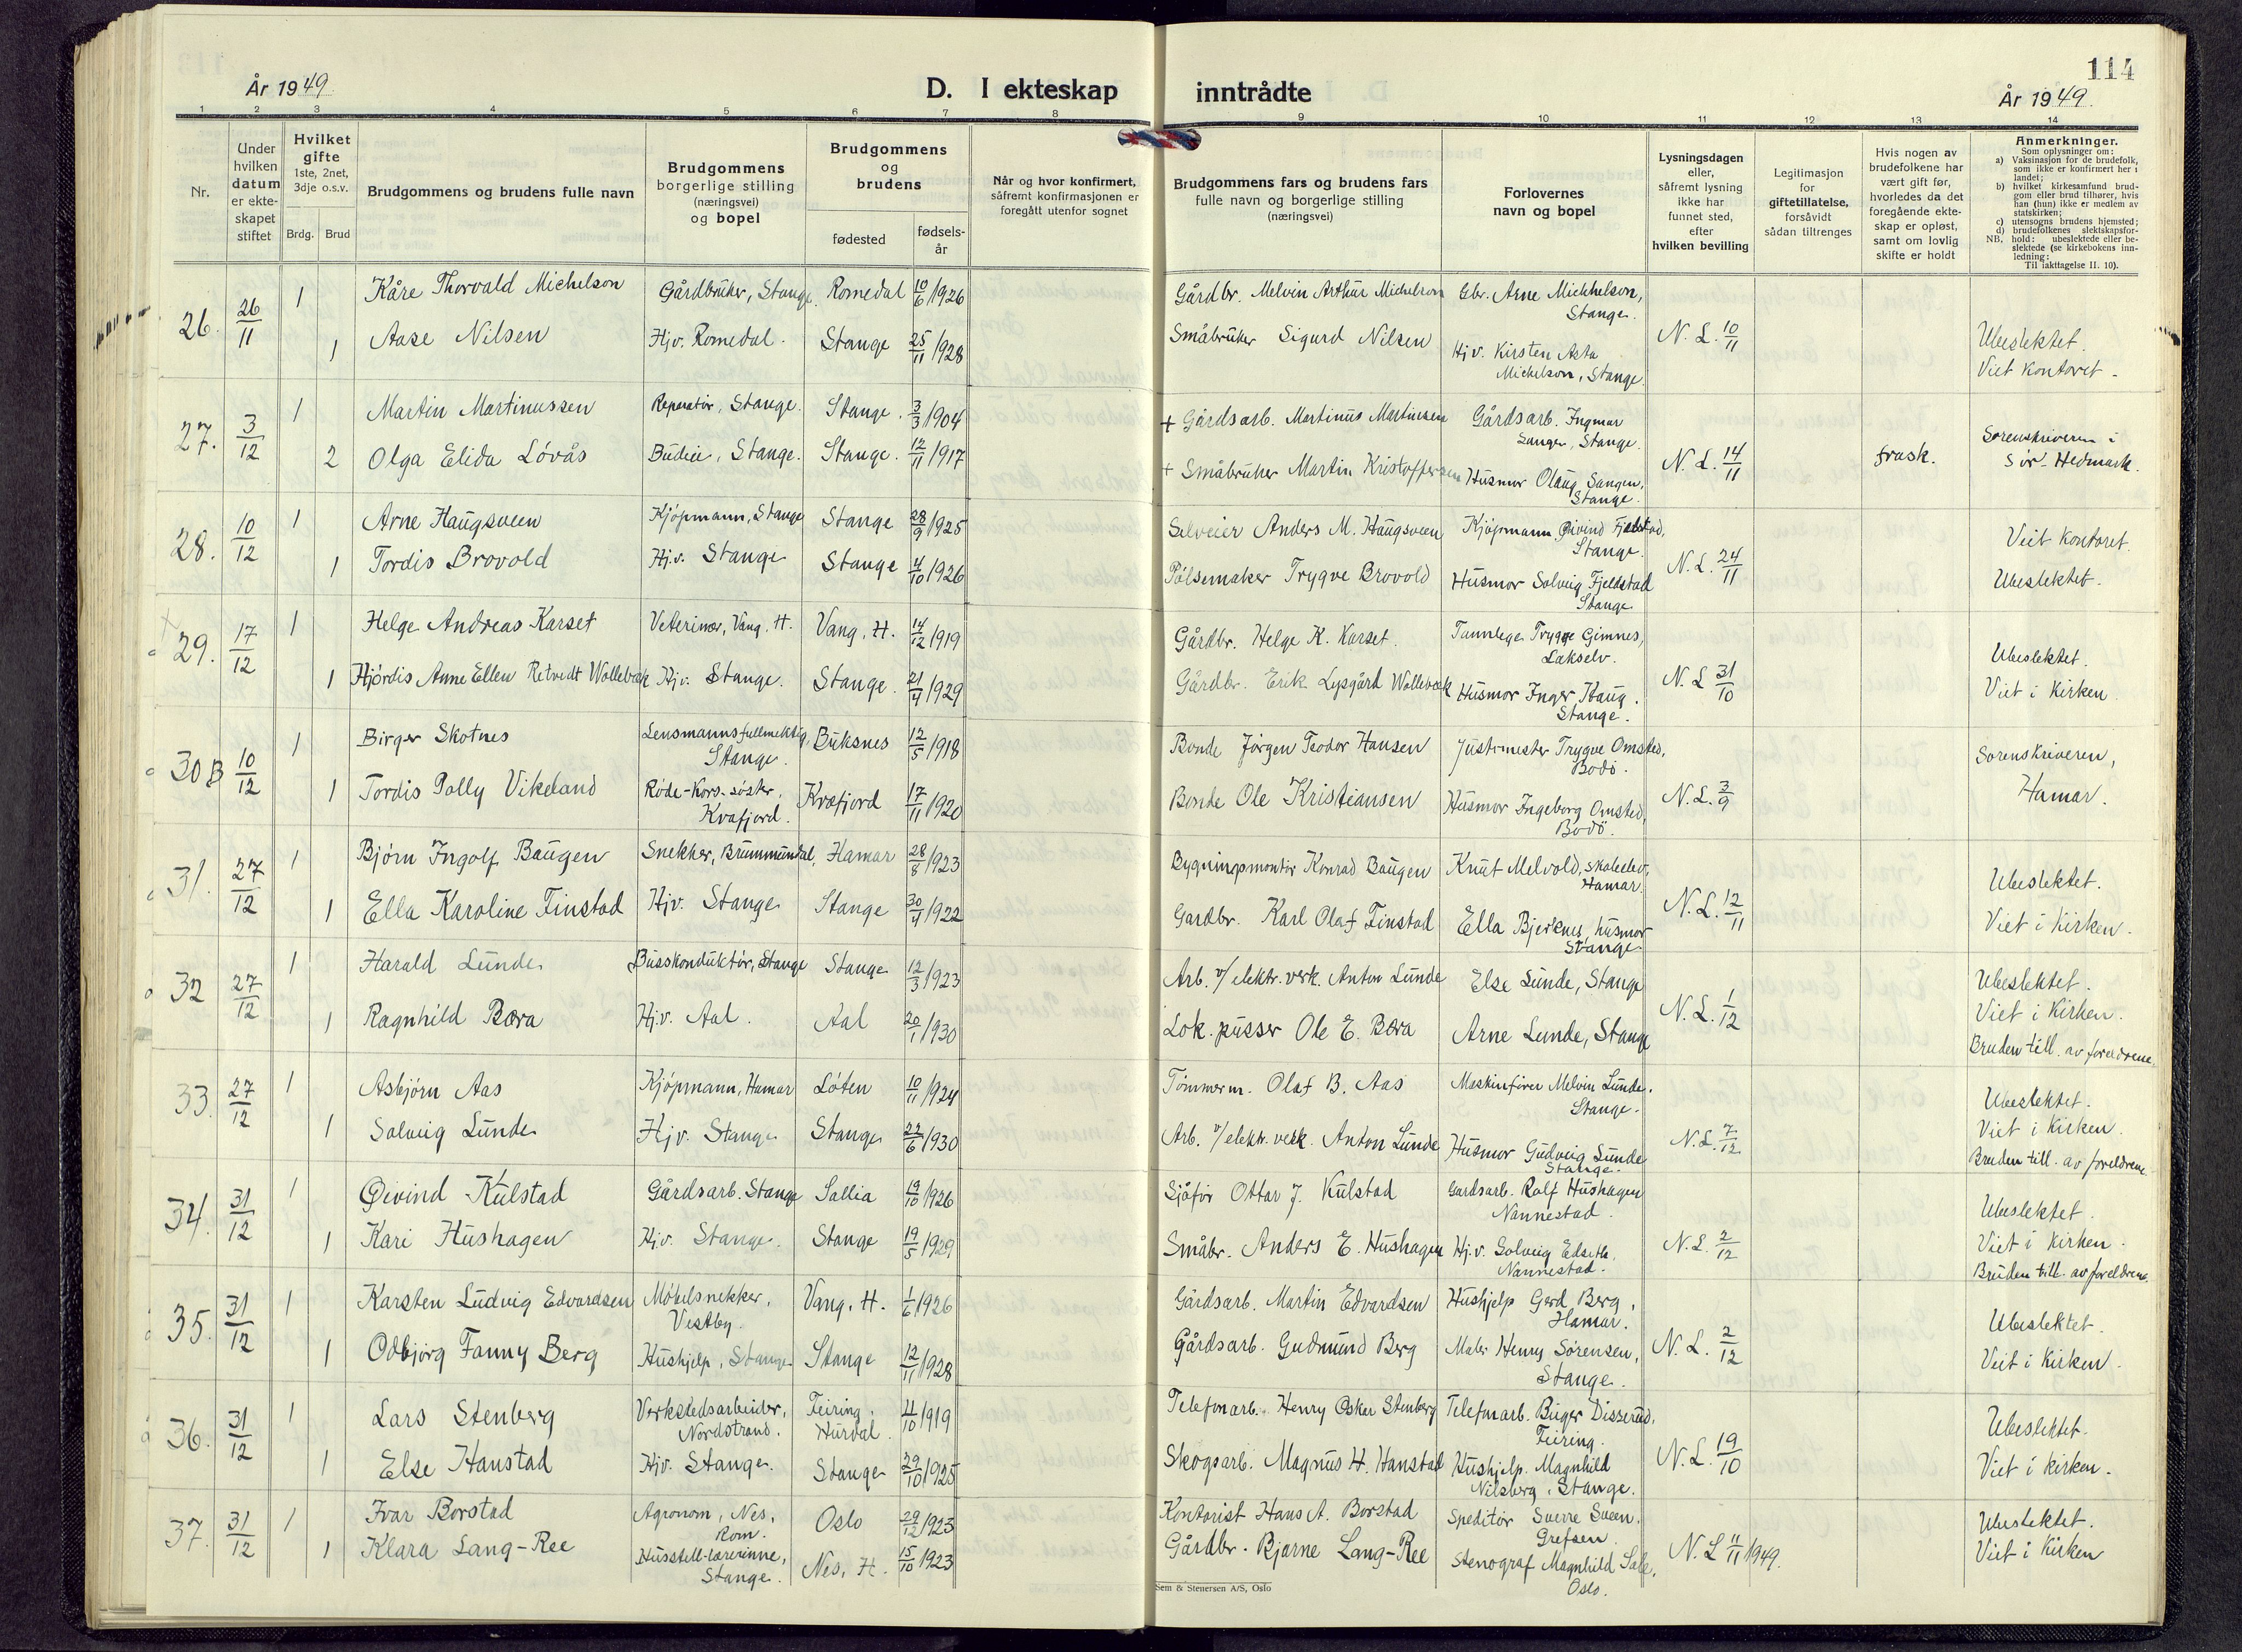 114
År 1949.
D. I ekteskap inntrådte
År 1949.
1 2 3 4 5 6 7 8 9 10 11 12 13 14
Nr.
Under hvilken datum er ekteskapet stiftet
Hvilket gifte
1ste, 2net, 3dje o.s.v.
Brdg. Brud
Brudgommens og brudens fulle navn
Brudgommens borgerlige stilling (næringsvei) og bopel
Brudgommens og brudens
fødested
fødselsår
Når og hvor konfirmert, såfremt konfirmasjonen er foregått utenfor sognet
Brudgommens fars og brudens fars fulle navn og borgerlige stilling (næringsvei)
Forlovernes navn og bopel
Lysningsdagen eller, såfremt lysning ikke har funnet sted, efter hvilken bevilling
Legitimasjon for giftetillatelse, forsåvidt sådan tiltrenges
Hvis nogen av brudefolkene har vært gift før, hvorledes da det foregående ekteskap er opløst, samt om lovlig skifte er holdt
Anmerkninger.
Som oplysninger om:
a) Vaksinasjon for de brudefolk, som ikke er konfirmert her i landet;
b) hvilket kirkesamfund brudgom eller brud tilhører, hvis han (hun) ikke er medlem av statskirken;
c) utensogns brudens hjemsted;
d) brudefolkenes slektskapsforhold: ubeslektede eller beslektede (se kirkebokens innledning:
NB,
Til iakttagelse II. 10).
26. 26/11 1 Kåre Thorvald Michelson Gårdbruker, Stange. Romedal 10/6 1926 Gårdbr. Melvin Arthur Michelson Gbr. Arne Michhelson, Stange.
1 Aase Nilsen Hjv. Romedal. Stange 25/11 1928 Småbruker Sigurd Nilsen Hjv. Kirsten Asta Michelson, Stange. N. L. 10/11 Ubeslektet. Viet kontoret.
27. 3/12 1 Martin Martinussen Reparatør, Stange. Stange. 3/3 1904 + Gårdsarb. Martinus Martinsen Gårdsarb. Ingmar Sangen, Stange.
2 Olga Elida Lóvås Budeie, Stange. Stange. 12/11 1917 + Småbruker Martin Kristoffersen Husmor Olaug Sangen, Stange. N. L. 14/11 frask. Sorenskriveren i Sør-Hedmark.
28. 10/12 1 Arne Haugsveen Kjøpmann, Stange Stange 28/9 1925 Selveier Anders M. Haugsveen Kjøpmann Øivind Fjelstad, Stange.
1 Tordis Brovold Hjv. Stange Stange 4/10 1926 Pólsemaker Trygve Brovold Husmor Solveig Fjellstad Stange. N. L. 24/11 Veit kontoret. Ubeslektet.
29. 17/12 1 Helge Andreas Karset Veterinær, Vang. H. Vang. H. 14/12 1919 Gårdbr. Helge K. Karset. Tannlege Trygve Gimnes, Lakselv.
1 Hjórdis Anne Ellen Retvedt Wollebæk Hjv. Stange. Stange. 21/4 1929 Gårdbr. Erik Lysgård Wollebæk Husmor Inger Haug. Stange. N. L 31/10 Ubeslektet. Viet i Kirken
30 B 10/12 1 Birger Skotnes Lensmannsfullmektig, Stange. Buksnes 12/5 1918 Bonde Jörgen Teodor Hansen Justismester Trygve Omsted, Bodö.
1 Tordis Polly Vikeland Röde-Kors-söster, Kvæfjord. Kvæfjord 17/11 1920 Bonde Ole Kristiansen Husmor Ingeborg Omsted, Bodö. N. L. 3/9 Sorenskriveren, Hamar.
31. 27/12 1 Bjørn Ingolf Baugen Snekker, Brummundal, Hamar 28/8 1923 Bygningsmontör Konrad Baugen Knut Melvold, skoleelev, Hamar.
1 Ella Karoline Finstad Hjv. Stange Stange 30/4 1922 Gardbr. Karl Olaf Finstad Ella Bjerknes, husmor Stange. N. L. 12/11 Ubeslektet. Viet i kirken.
32 27/12 1 Harald Lunde Busskonduktør, Stange Stange 12/3 1923 Arb. v/ elektr. verk. Anton Lunde Else Lunde, Stange
1 Ragnhild Bæra Hjv. Aal. Aal 20/1 1930 Lok. pusser Ole E. Bæra Arne Lunde, Stange N. L. 1/12 Ubeslektet. Viet i Kirken. Bruden till. av foreldrene.
33. 27/12 1 Asbjørn Aas Kjópmann, Hamar Lóten 10/11 1924 Tömmerm. Olaf B. Aas Maskinfører Melvin Lunde. Stange.
1 Solveig Lunde Hjv. Stange Stange 22/6 1930 Arb. v/elektr. verk. Anton Lunde Husmor Gudveig Lunde Stange. N. L. 7/12 Ubeslektet. Viet i Kirken. Bruden till. av foreldrene.
34. 31/12 1 Øivind Kulstad Gårdsarb. Stange Sollia 19/10 1926 Sjåför Ottar J. Kulstad Gardsarb. Rolf Hushagen Nannestad.
1 Kari Hushagen Hjv. Stange. Stange 19/5 1929 Småbr. Anders E. Hushagen Hjv. Solveig Edseth, Nannestad. N. L. 2/12 Ubeslektet. Viet i Kirken. Bruden till. av foreldrene.
35. 31/12 1 Karsten Ludvig Edvardsen Møbelsnekker, Vestby. Vang. H. 1/6 1926 Gårdsarb. Martin Edvardsen Hushjelp Gerd Berg, Hamar.
1 Odbjørg Fanny Berg Hushjelp, Stange Stange 12/11 1928 Gårdsarb. Gudmund Berg Maler Henry Sørensen, Stange. N. L. 2/12 Ubeslektet. Veit i Kirken.
36. 31/12 1 Lars Stenberg Verkstedsarbeider, Nordstrand. Feiring, Hurdal 4/10 1919 Telefonarb. Henry Oskar Stenberg Telefonarb. Birger Disserud, Feiring.
1 Else Hanstad Hjv. Stange. Stange 29/10 1925 Skogsarb. Magnus H. Hanstad Hushjelp. Magnhild Nilsberg, Stange. N. L. 19/10 Ubeslektet. Viet i kirken.
37. 31/12 1 Ivar Borstad Agronom, Nes, Rom. Oslo 29/12 1923 Kontorist Hans A. Borstad Speditør Sverre Sveen. Grefsen
1 Klara Lang-Ree Husstell-lærerinne, Stange. Nes. H. 15/10 1923 Gårdbr. Bjarne Lang-Ree Stenograf Magnhild Oslo. N. L 11/11 1949. Ubeslektet. Viet i Kirken
Sem & Stenersen A/S, Oslo